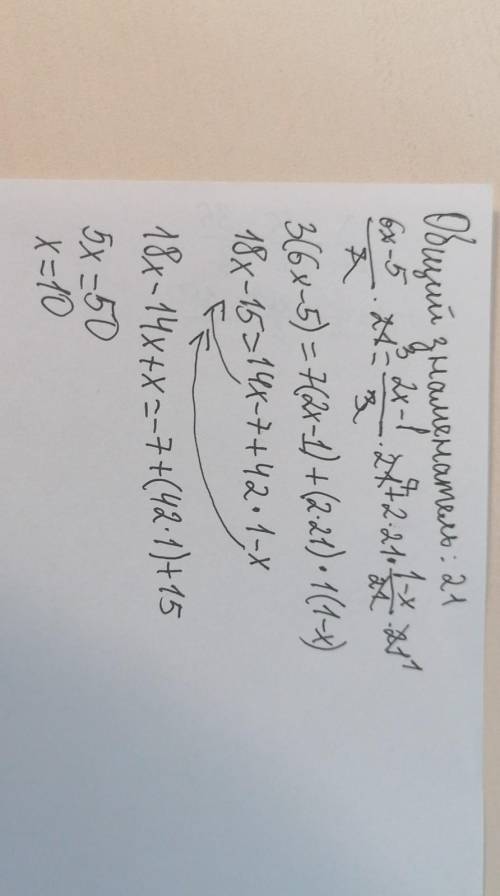 Общий знаменатель: 21
6x-5/7 · 21 = 3 2x-1/3 · 21 7 + 2·21· 1-x/21 · 21 1
3(6x-5)=7(2x-1)+(2·21)·1(1-x)
18x-15=14x-7+42·1-x
18x-14x+x=-7+(42·1)+15
5x=50
x=10